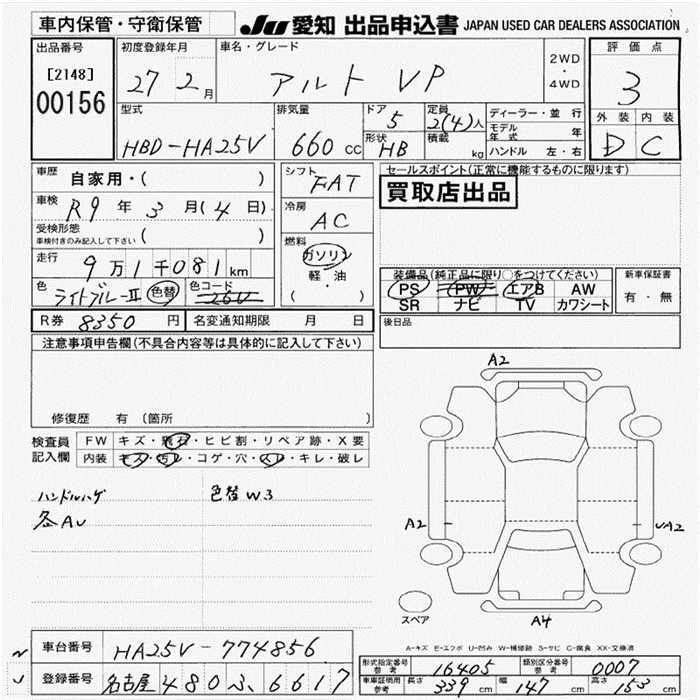 車内保管・守衛保管
JU 愛知 出品申込書 JAPAN USED CAR DEALERS ASSOCIATION
出品番号
[2148]
00156
初度登録年月
27 2月
車名・グレード
アルト VP
2WD
・
4WD
評価点
3
外装 内装
D C
型式
HBD-HA25V
排気量
660 CC
ドア
5
形状
HB
定員
2(4)人
積載
kg
ディーラー・並行
モデル年式 年
ハンドル 左・右
車歴 自家用・( )
車検 R9年3月(4日)
受検形態
車検付きのみ記入して下さい ( )
走行 9万1千081km
色 ライトブルーII 色替
色コード 26U
シフト
FAT
冷房
AC
燃料
ガソリン
軽・油
( )
セールスポイント(正常に機能するものに限ります)
買取店出品
装備品(純正品に限り○をつけてください)
PS PW エアB AW
SR ナビ TV カワシート
新車保証書
有・無
R券 8350円 名変通知期限 月 日
後日品
注意事項申告欄(不具合内容等は具体的に記入して下さい)
修復歴 有 (箇所
検査員記入欄
FW キズ・飛石・ヒビ割・リペア跡・X要
内装 キズ・汚レ・コゲ・穴・スレ・キレ・破レ
ハンドルハゲ 色替W3
各AU
A2
A2
A2
A4
スペア
A-キズ E-エクボ U-凹み W-補修跡 S-サビ C-腐食 XX-交換済
車台番号 HA25V-774856
登録番号 名古屋 480 ふ 6617
形式指定番号 参考 16405 類別区分番号 参考 0007
車庫証明用 参考 長さ 339cm 幅 147cm 高さ 153cm